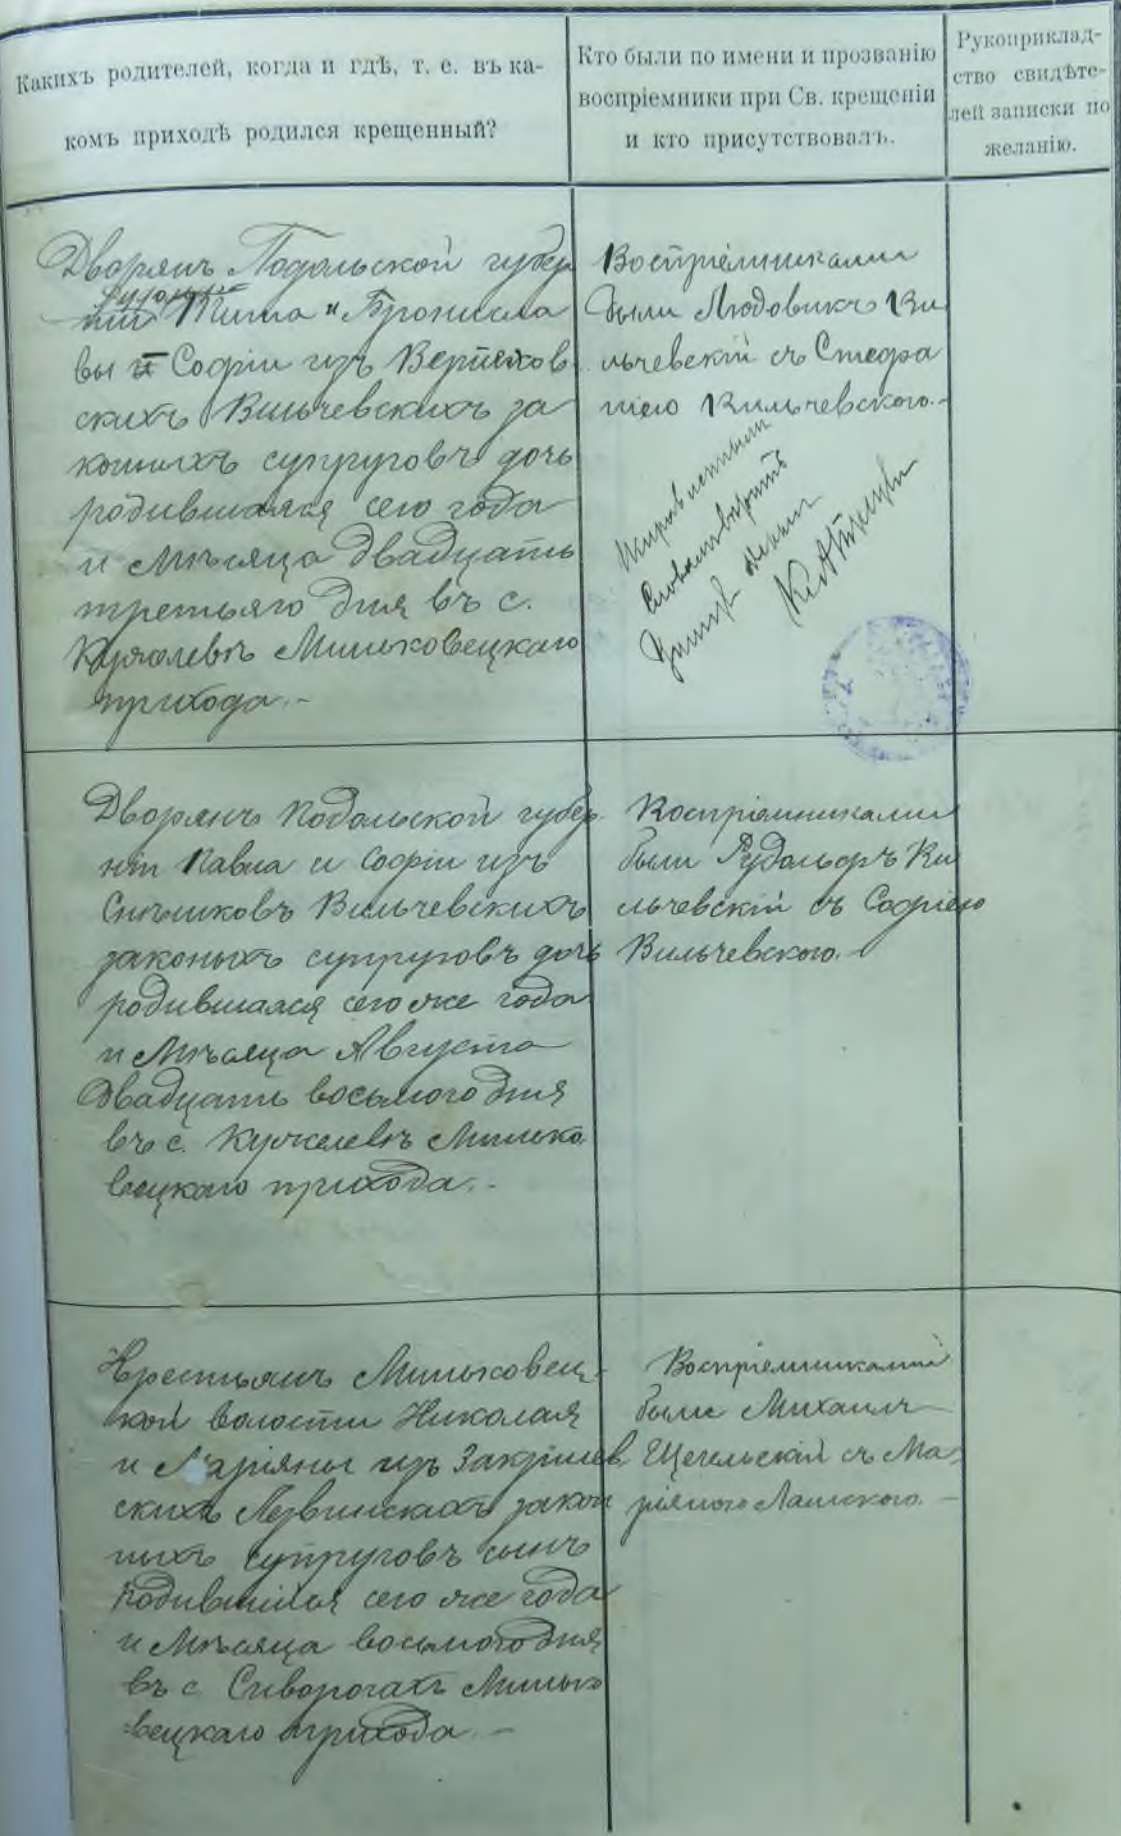 Какихъ родителей, когда и гдѣ, т. е. въ ка-
комъ приходѣ родился крещенный?
Кто были по имени и прозванію
воспріемники при Св. крещеніи
и кто присутствовалъ.
Рукоприклад-
ство свидѣте-
лей записки по
желанію.
Дворянъ Подольской губер
ніи Тита и Бронисла
вы и Софіи изъ
скихъ Вильчевскихъ за
конныхъ супруговъ дочь
родившаяся сего года
и мѣсяца двадцать
третьяго дня въ с.
Кужелевѣ Миньковецкаго
прихода.-
Воспріемниками
были Людовикъ Ви
льчевскій съ Стефа
ніею Вильчевского.-
Дворянъ Подольской губер
ніи Павла и Софіи изъ
Вильчевскихъ
законыхъ супруговъ дочь
родившаяся сего же года
и мѣсяца Августа
двадцать восьмого дня
въ с. Кужелевѣ Минько
вецкаго прихода.-
Воспріемниками
были Рудольфъ Ви
льчевскій съ Софіею
Вильчевского.-
Крестьянъ Миньковец-
кой волости Николая
и Маріяны изъ
скихъ закон
ныхъ супруговъ сынъ
родившійся сего же года
и мѣсяца восьмого дня
въ с. Сиворогахъ Минько
вецкаго прихода.-
Воспріемниками
были Михаилъ
съ Ма-
ріяною